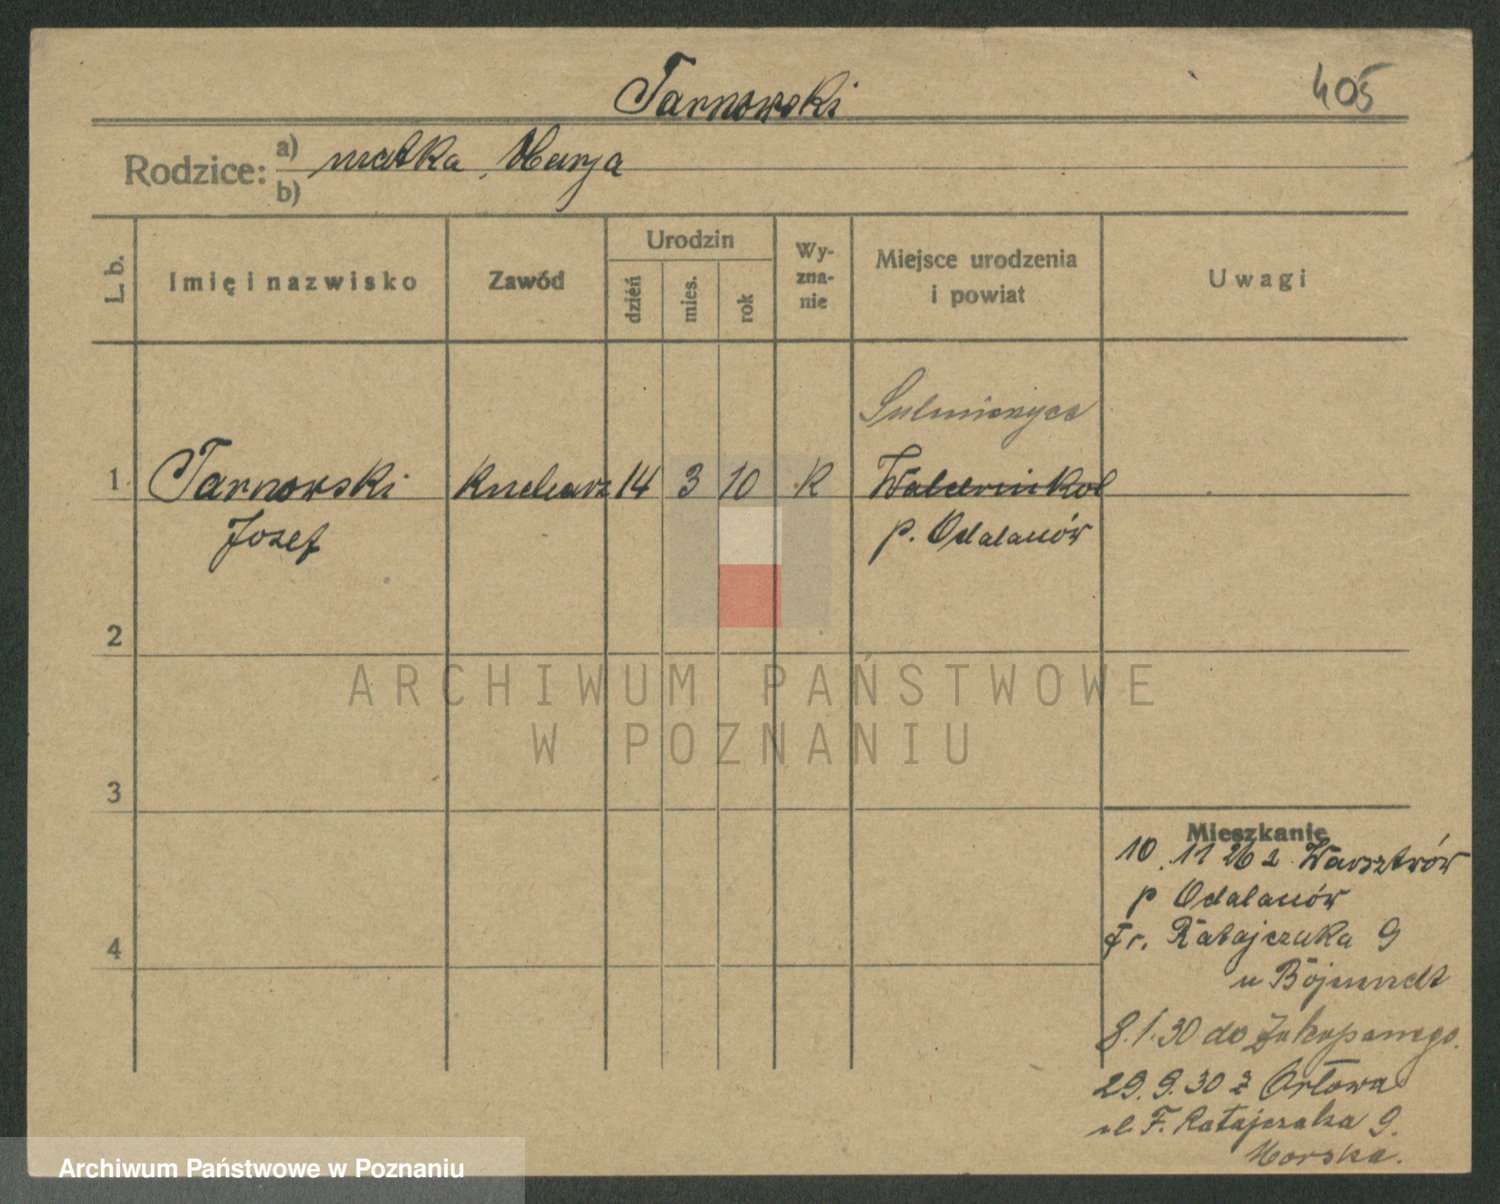 Tarnowski
405
Rodzice: a) matka Marja
b)
L. b.
Imię i nazwisko
Zawód
Urodzin
dzień
mies.
rok
Wy-
zna-
nie
Miejsce urodzenia
i powiat
Uwagi
Sulmierzyce
1 Tarnowski Kucharz 14 3 10 R
Józef
p. Odalanów
2
3
4
ARCHIWUM PAŃSTWOWE
W POZNANIU
Mieszkanie
10 11 26 z
p Odalanów
Fr. Ratajczaka 9
u
8.1.30 do Zakopanego.
29.9.30 z Orłowa
ul. F. Ratajczaka 9.
Morska.
Archiwum Państwowe w Poznaniu